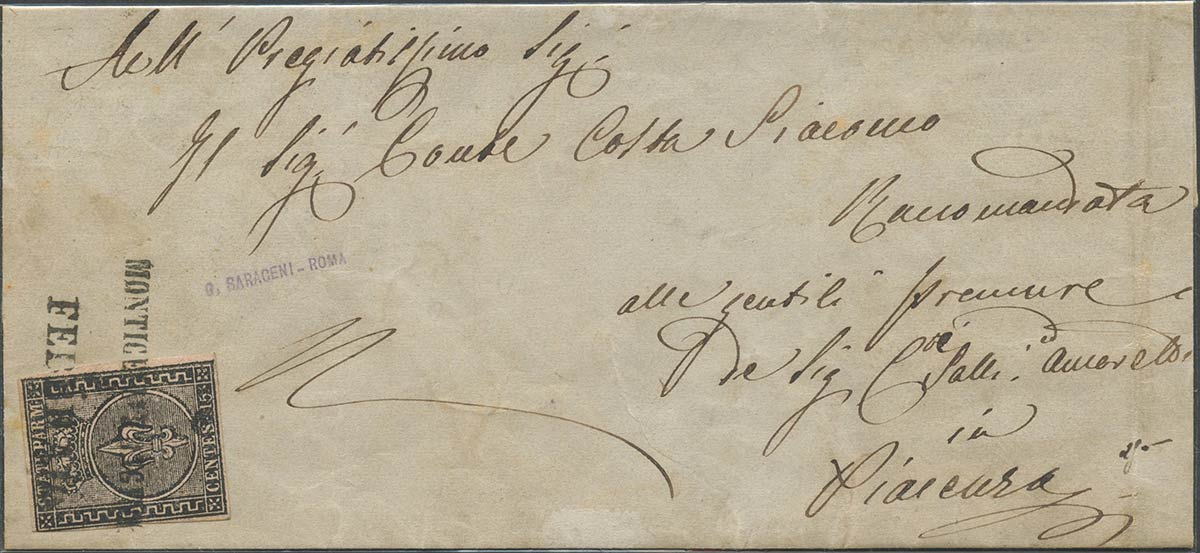 All' Pregiatissimo Sig.
Il Sig. Conte Costa Giacomo
Raccomandata
alle gentili premure
De Sig Galli
in
Piacenza
G. SARACENI - ROMA
MONTICE
FEB
STATI PARM
CENTES. 15